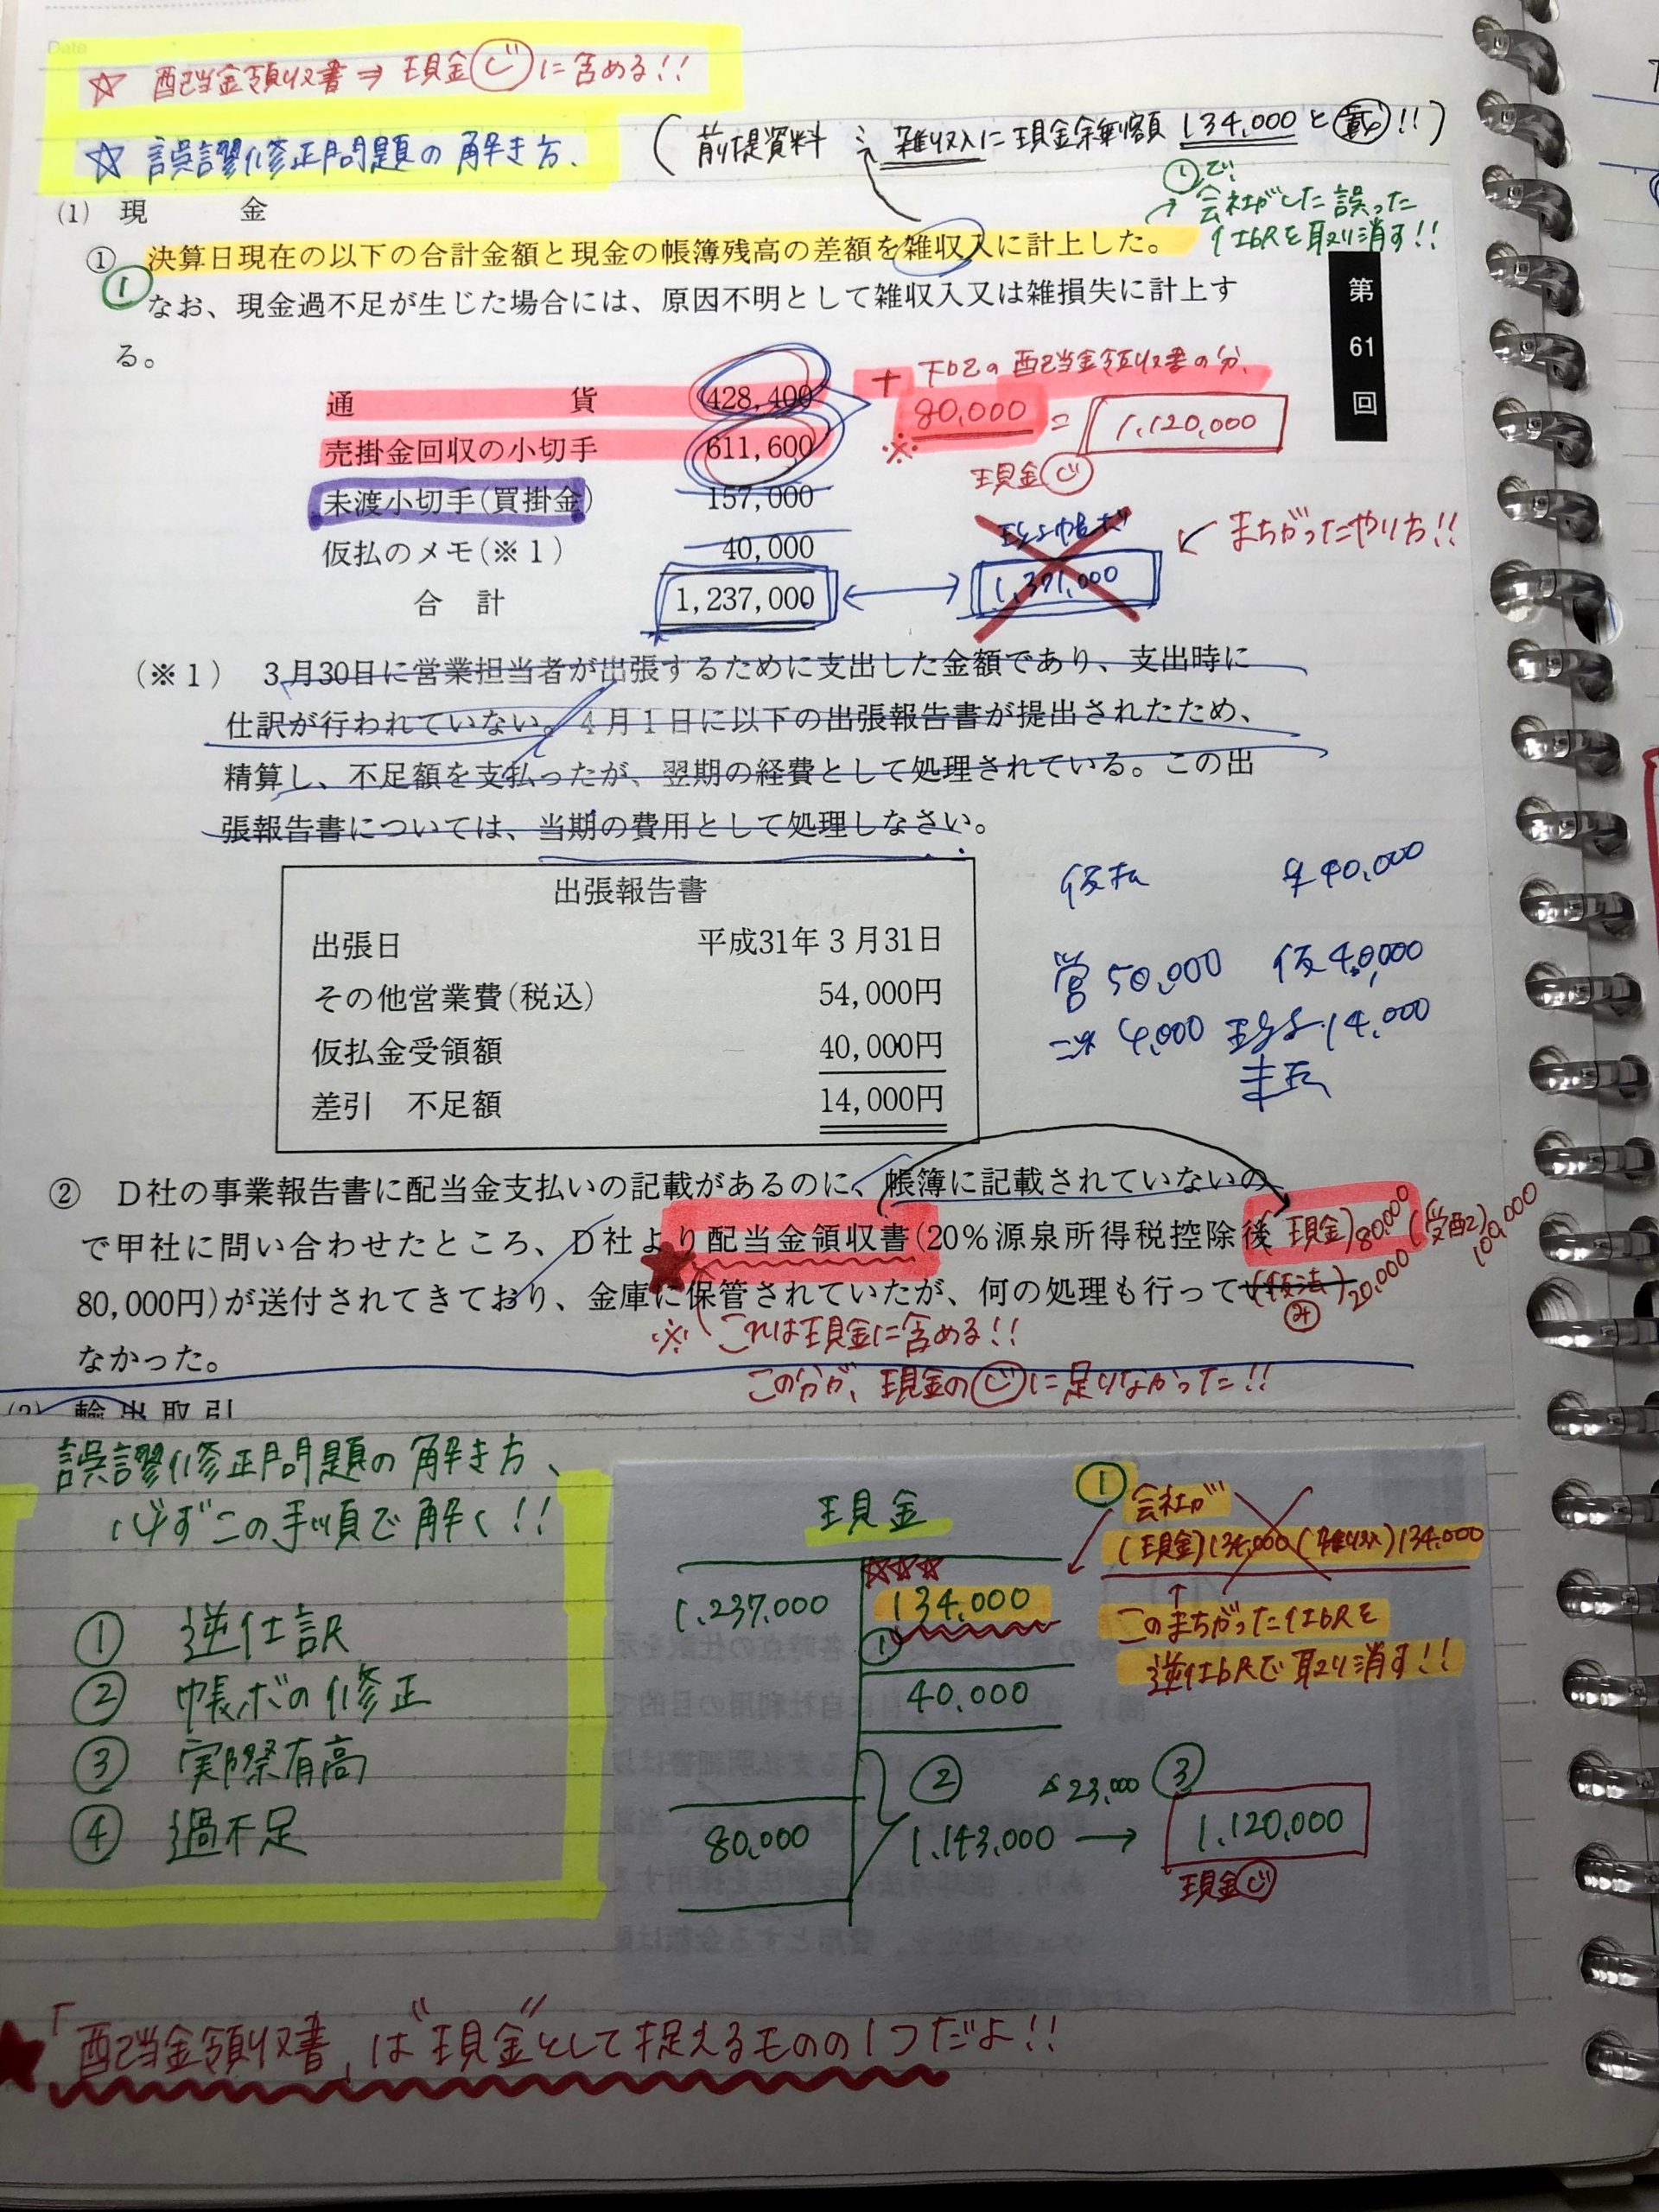 Date
☆ 配当金領収書⇒現金㋛に含める!!
☆ 誤謬修正問題の解き方、
(前提資料 雑収入に現金余剰額 134,000と載!!)
①で!
会社がした誤った
仕訳を取り消す!!
(1) 現 金
① 決算日現在の以下の合計金額と現金の帳簿残高の差額を雑収入に計上した。
①
なお、現金過不足が生じた場合には、原因不明として雑収入又は雑損失に計上す
る。
第61回
通 貨 428,400
+ 下記の配当金領収書の分、
80,000 = 1,120,000
※
現金㋛
売掛金回収の小切手 611,600
未渡小切手(買掛金) 157,000
仮払のメモ(※1) 40,000
合 計 1,237,000
1,371,000
まちがったやり方!!
(※1) 3月30日に営業担当者が出張するために支出した金額であり、支出時に
仕訳が行われていない。4月1日に以下の出張報告書が提出されたため、
精算し、不足額を支払ったが、翌期の経費として処理されている。この出
張報告書については、当期の費用として処理しなさい。
出張報告書
出張日 平成31年3月31日
その他営業費(税込) 54,000円
仮払金受領額 40,000円
差引 不足額 14,000円
仮払 40,000
営 50,000 仮 40,000
4,000 14,000
② D社の事業報告書に配当金支払いの記載があるのに、帳簿に記載されていないの
で甲社に問い合わせたところ、D社より配当金領収書(20%源泉所得税控除後
現金)80,000 (受配)100,000
80,000円)が送付されてきており、金庫に保管されていたが、何の処理も行ってい
(仮法)20,000
なかった。
※ これは現金に含める!!
この分が、現金の㋛に足りなかった!!
(2) 輸出取引
誤謬修正問題の解き方、
必ずこの手順で解く!!
① 逆仕訳
② 帳ボの修正
③ 実際有高
④ 過不足
現金
1,237,000
☆☆☆
134,000
①
40,000
80,000
② 1,143,000 →
△23,000
③ 1,120,000
現金㋛
① 会社が
(現金)134,000 (雑収入)134,000
このまちがった仕訳を
逆仕訳で取り消す!!
★「配当金領収書」は"現金"として捉えるものの1つだよ!!